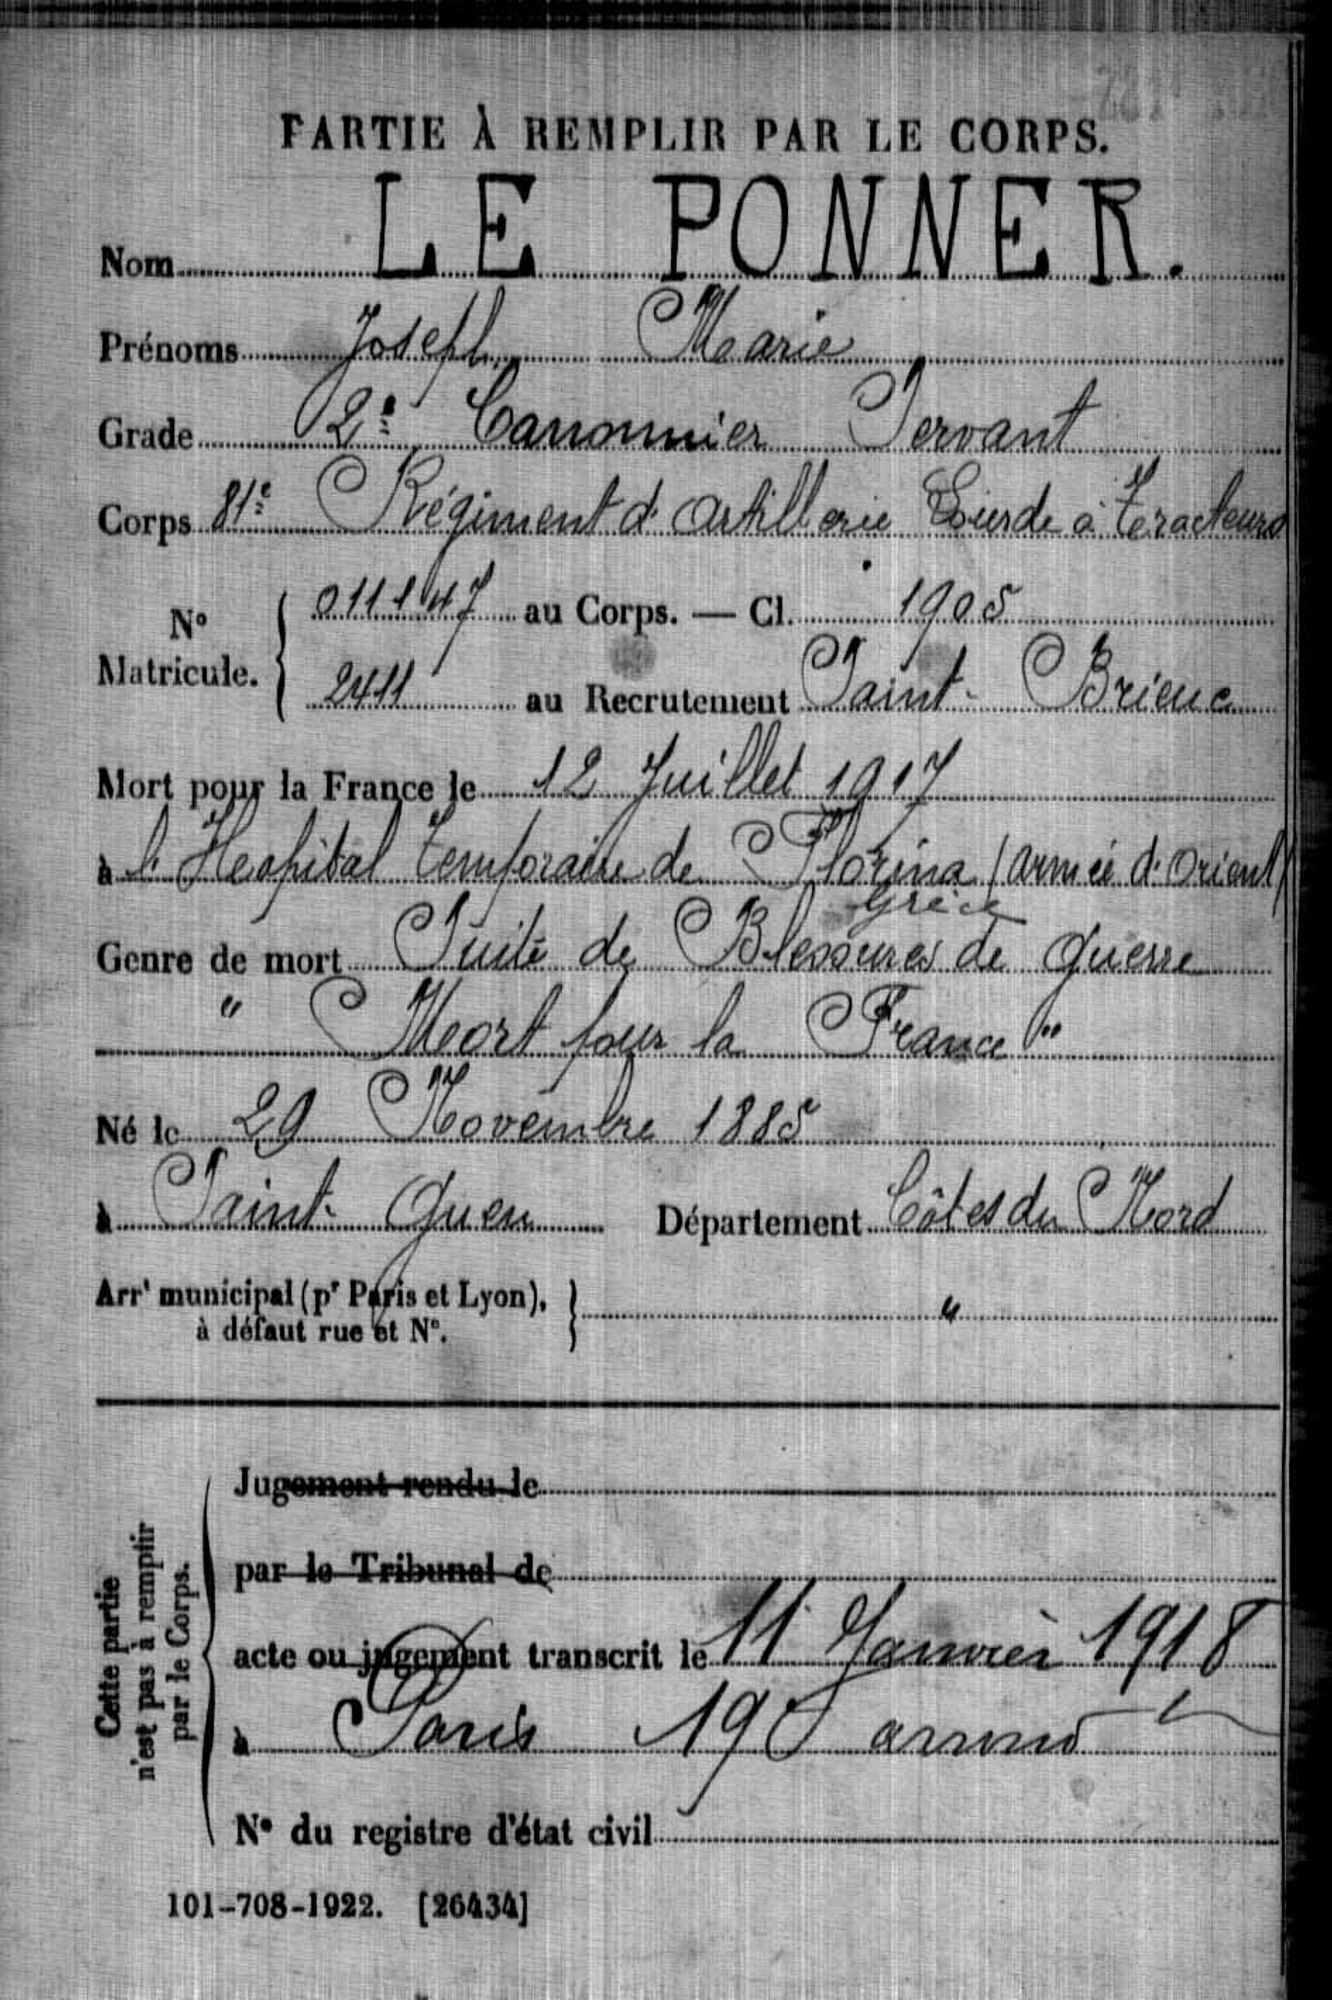 PARTIE À REMPLIR PAR LE CORPS.
Nom LE PONNER.
Prénoms Joseph Marie
Grade 2e Canonnier Servant
Corps 81e Régiment d'Artillerie Lourde à Tracteurs
N° Matricule. 011147 au Corps. — Cl. 1905
2411 au Recrutement Saint-Brieuc
Mort pour la France le 12 Juillet 1917
à l'Hopital Temporaire de Florina (armée d'Orient)
Grèce
Genre de mort Suite de Blessures de guerre
"Mort pour la France"
Né le 29 Novembre 1885
à Saint-Guen Département Côtes du Nord
Arrt municipal (pr Paris et Lyon), à défaut rue et N°. "
Cette partie n'est pas à remplir par le Corps.
Jugement rendu le
par le Tribunal de
acte ou jugement transcrit le 11 Janvier 1918
à Paris 19e arrond
N° du registre d'état civil
101-708-1922. [26434]